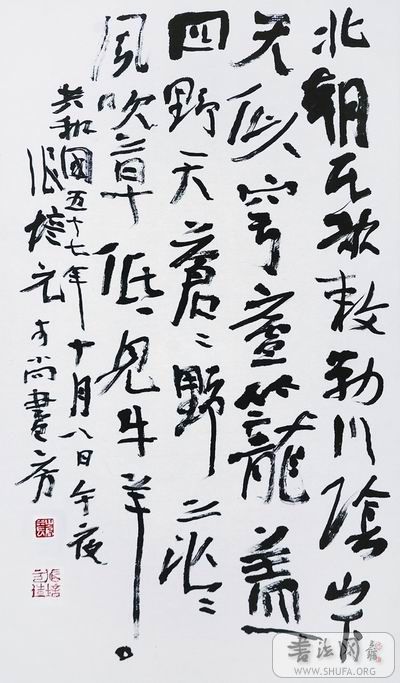 北朝民歌敕勒川陰山下
天似穹廬籠蓋
四野天蒼〻野茫〻
風吹草低見牛羊。
共和國五十七年十月八日午夜
張培元于尚畫房
书法网
WWW.SHUFA.ORG